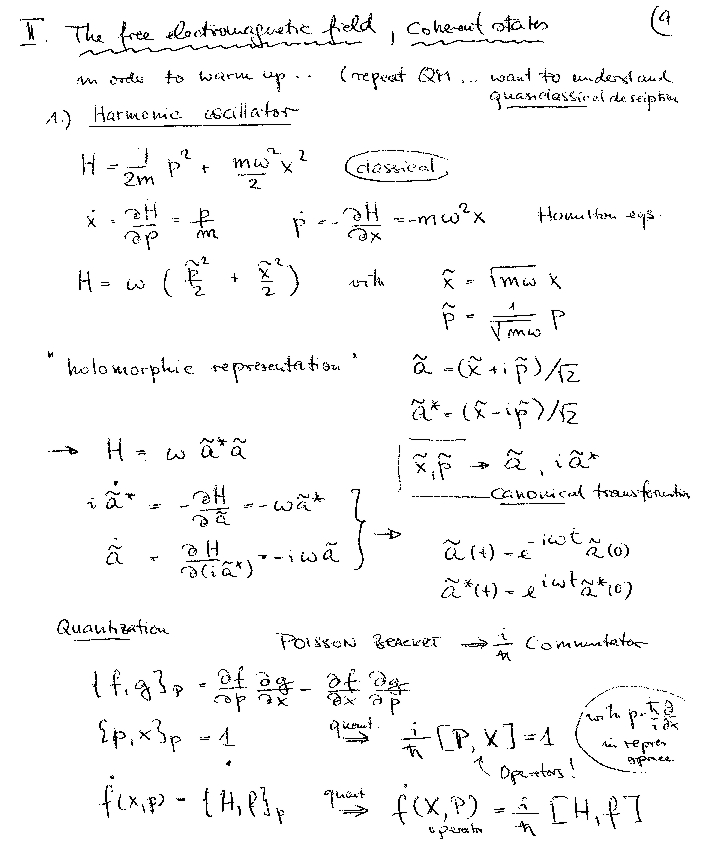 II. The free electromagnetic field, Coherent states (9
in order to warm up .. (repeat QM ... want to understand
quasiclassical description
1.) Harmonic oscillator
H = 1/2m p² + mω²/2 x² (classical)
ẋ = ∂H/∂p = p/m ṗ = -∂H/∂x = -mω²x Hamilton eqs.
H = ω ( p̃²/2 + x̃²/2 ) with x̃ = √mω x
p̃ = 1/√mω p
"holomorphic representation" ã = (x̃ + i p̃)/√2
ã* = (x̃ - i p̃)/√2
→ H = ω ã*ã x̃, p̃ → ã, i ã*
canonical transformation
i ã̇* = -∂H/∂ã = -ωã*
ã̇ = ∂H/∂(iã*) = -iωã } → ã(t) = e^{-iωt} ã(0)
ã*(t) = e^{iωt} ã*(0)
Quantization
POISSON BRACKET → i/ħ Commutator
{f,g}_p = ∂f/∂p ∂g/∂x - ∂f/∂x ∂g/∂p
{p,x}_p = 1 quant. ⇒ i/ħ [P, X] = 1 (with p = ħ/i ∂/∂x in repres space)
Operators!
ḟ(x,p) = {H,f}_p quant ⇒ ḟ(X,P) = i/ħ [H, f]
operator